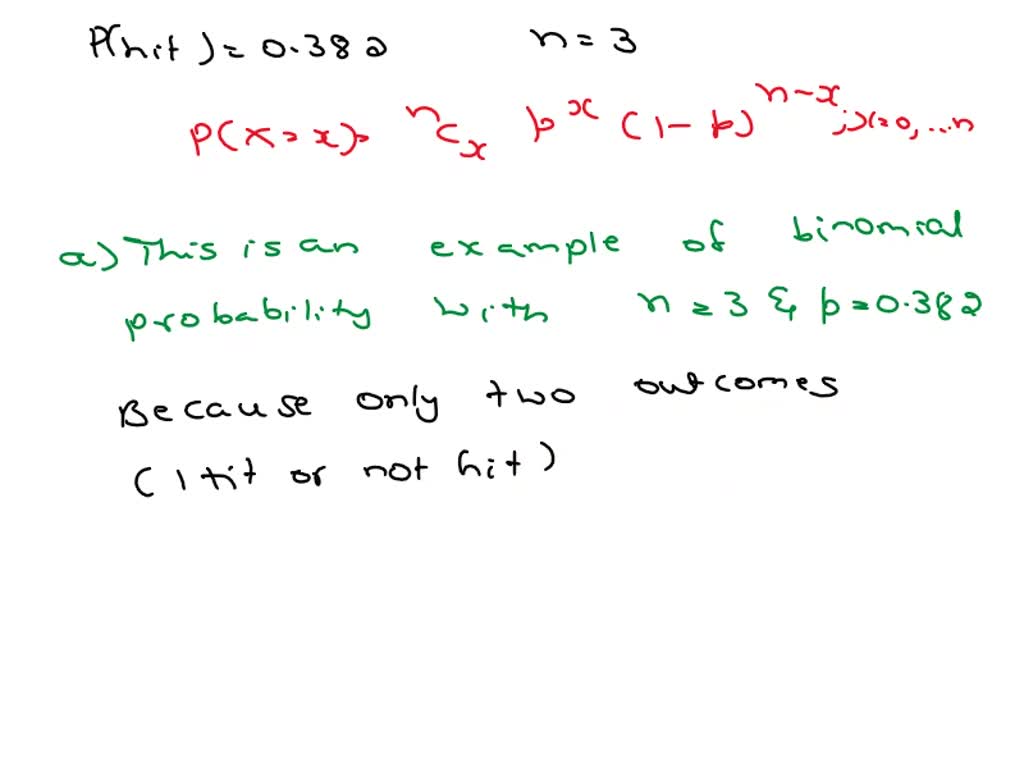 P(hit) = 0.382 n = 3
P(X=x)= ⁿCₓ pˣ (1-p)ⁿ⁻ˣ; x=0,...n
a) This is an example of binomial
probability with n = 3 & p=0.382
Because only two outcomes
(Hit or not hit)